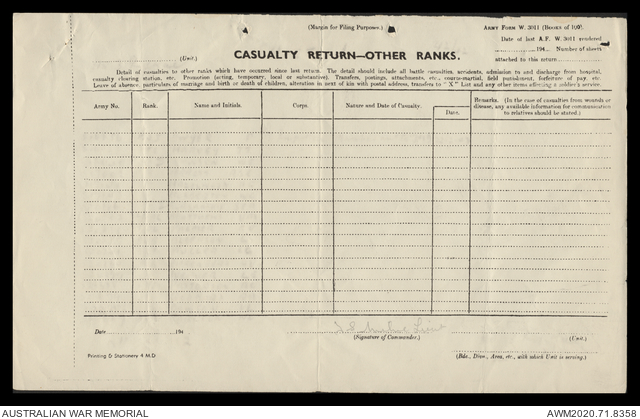 (Margin for Filing Purposes.)
ARMY FORM W. 3011 (BOOKS OF 100).
Date of last A.F. W. 3011 rendered
194 . Number of sheets
(Unit.)
attached to this return
CASUALTY RETURN—OTHER RANKS.
Detail of casualties to other ranks which have occurred since last return. The detail should include all battle casualties, accidents, admission to and discharge from hospital,
casualty clearing station, etc. Promotion (acting, temporary, local or substantive). Transfers, postings, attachments, etc., court-martial, field punishment, forfeiture of pay, etc.
Leave of absence, particulars of marriage and birth or death of children, alteration in next of kin with postal address, transfers to "X" List and any other items affecting a soldier's service.
Army No.
Rank.
Name and Initials.
Corps.
Nature and Date of Casualty.
Date.
Remarks. (In the case of casualties from wounds or
disease, any available information for communication
to relatives should be stated.)
Date 194
(Signature of Commander.)
(Unit.)
Printing & Stationery 4 M.D.
(Bde., Divn., Area, etc., with which Unit is serving.)
AUSTRALIAN WAR MEMORIAL
AWM2020.71.8358